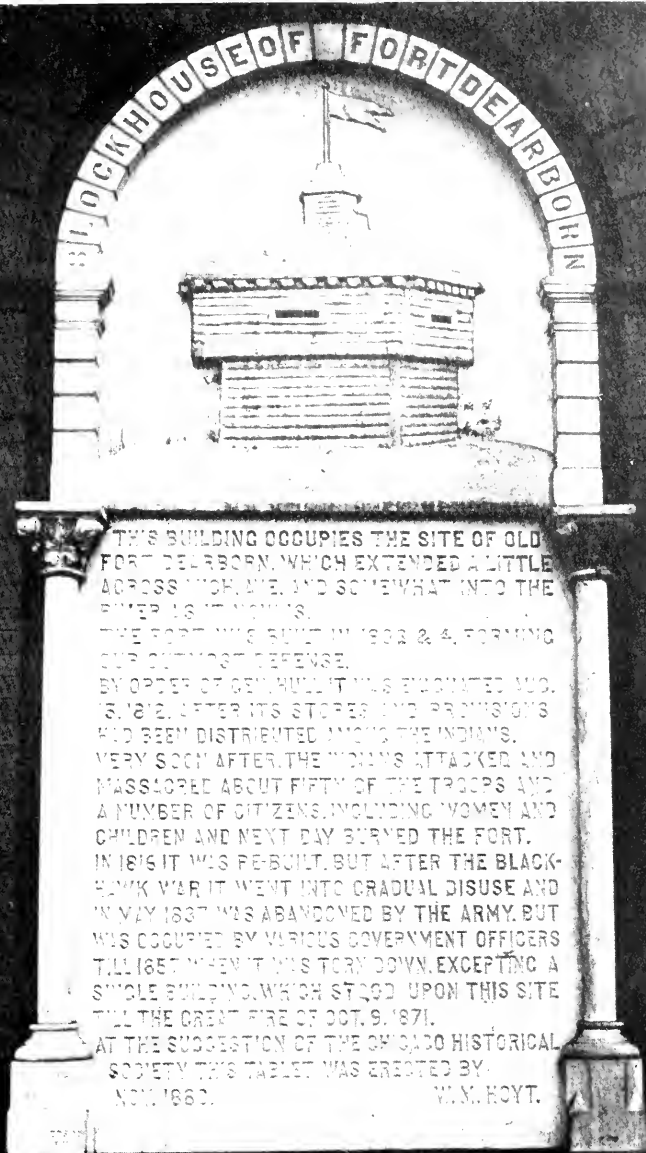 BLOCKHOUSE OF FORT DEARBORN
THIS BUILDING OCCUPIES THE SITE OF OLD
FORT DEARBORN, WHICH EXTENDED A LITTLE
ACROSS MICH. AVE. AND SOMEWHAT INTO THE
RIVER AS IT NOW IS.
THE FORT WAS BUILT IN 1803 & 4, FORMING
OUR OUTMOST DEFENSE.
BY ORDER OF GEN. HULL IT WAS EVACUATED AUG.
15, 1812, AFTER ITS STORES AND PROVISIONS
HAD BEEN DISTRIBUTED AMONG THE INDIANS.
VERY SOON AFTER, THE INDIANS ATTACKED AND
MASSACRED ABOUT FIFTY OF THE TROOPS AND
A NUMBER OF CITIZENS, INCLUDING WOMEN AND
CHILDREN AND NEXT DAY BURNED THE FORT.
IN 1816 IT WAS RE-BUILT, BUT AFTER THE BLACK-
HAWK WAR IT WENT INTO GRADUAL DISUSE AND
IN MAY 1837 WAS ABANDONED BY THE ARMY, BUT
WAS OCCUPIED BY VARIOUS GOVERNMENT OFFICERS
TILL 1857 WHEN IT WAS TORN DOWN, EXCEPTING A
SINGLE BUILDING, WHICH STOOD UPON THIS SITE
TILL THE GREAT FIRE OF OCT. 9, 1871.
AT THE SUGGESTION OF THE CHICAGO HISTORICAL
SOCIETY THIS TABLET WAS ERECTED BY
NOV. 1880. W. M. HOYT.